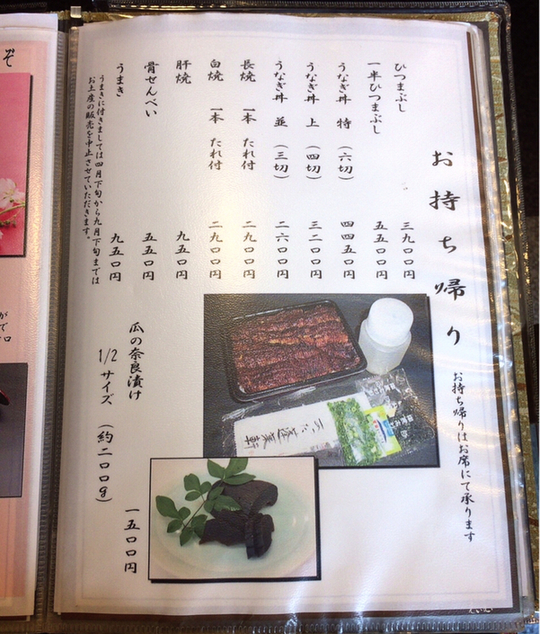 お持ち帰り
お持ち帰りはお席にて承ります
ひつまぶし 三九〇〇円
一半ひつまぶし 五五〇〇円
うなぎ丼 特 (六切) 四四五〇円
うなぎ丼 上 (四切) 三二〇〇円
うなぎ丼 並 (三切) 二六〇〇円
長焼 一本 たれ付 二九〇〇円
白焼 一本 たれ付 二九〇〇円
肝焼 九五〇円
骨せんべい 五五〇円
うまき 九五〇円
うまきに付きましては四月下旬から九月下旬までは
お土産の販売を中止させていただきます。
瓜の奈良漬け
1/2サイズ (約二〇〇g)
一五〇〇円
ぞ
が
で